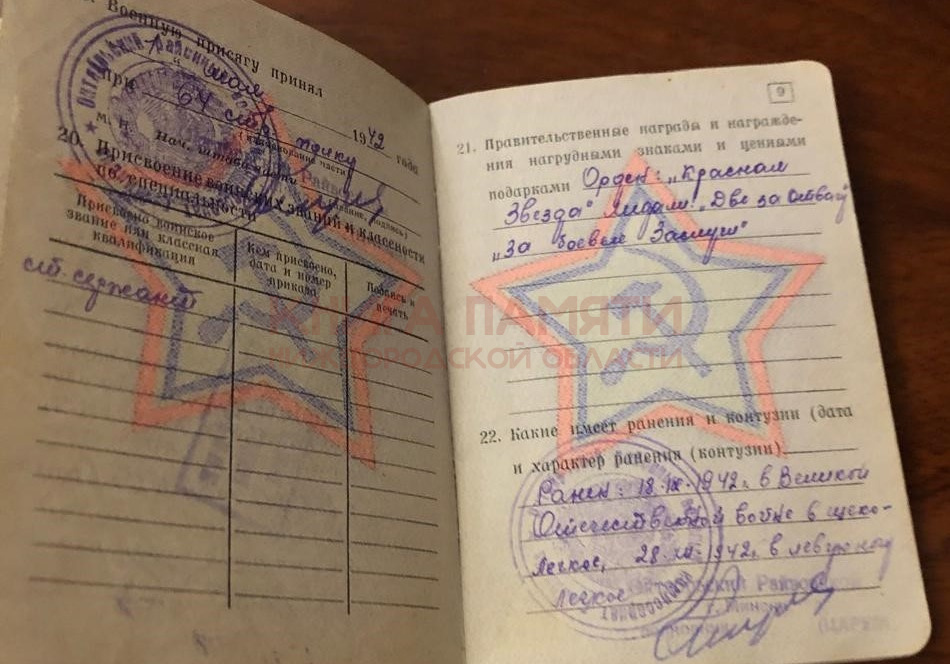 Военную присягу принял
1 " мая 1942 года
при 64 стр. полку
(наименование части)
М. П.
Нач. штаба
20. Присвоение воинских званий и классности
по специальности
Присвоено воинское
звание или классная
квалификация
Кем присвоено,
дата и номер
приказа
Подпись и
печать
ст. сержант
9
21. Правительственные награды и награжде-
ния нагрудными знаками и ценными
подарками Орден: „Красная
Звезда" Медали „Две за отвагу
„За боевые Заслуги"
КНИГА ПАМЯТИ
НИЖЕГОРОДСКОЙ ОБЛАСТИ
22. Какие имеет ранения и контузии (дата
и характер ранения (контузии)
Ранен: 18.IX.1942г. в Великой
Отечественной войне в щеко-
легкое, 28.XII.1942г. в левую ногу
легкое